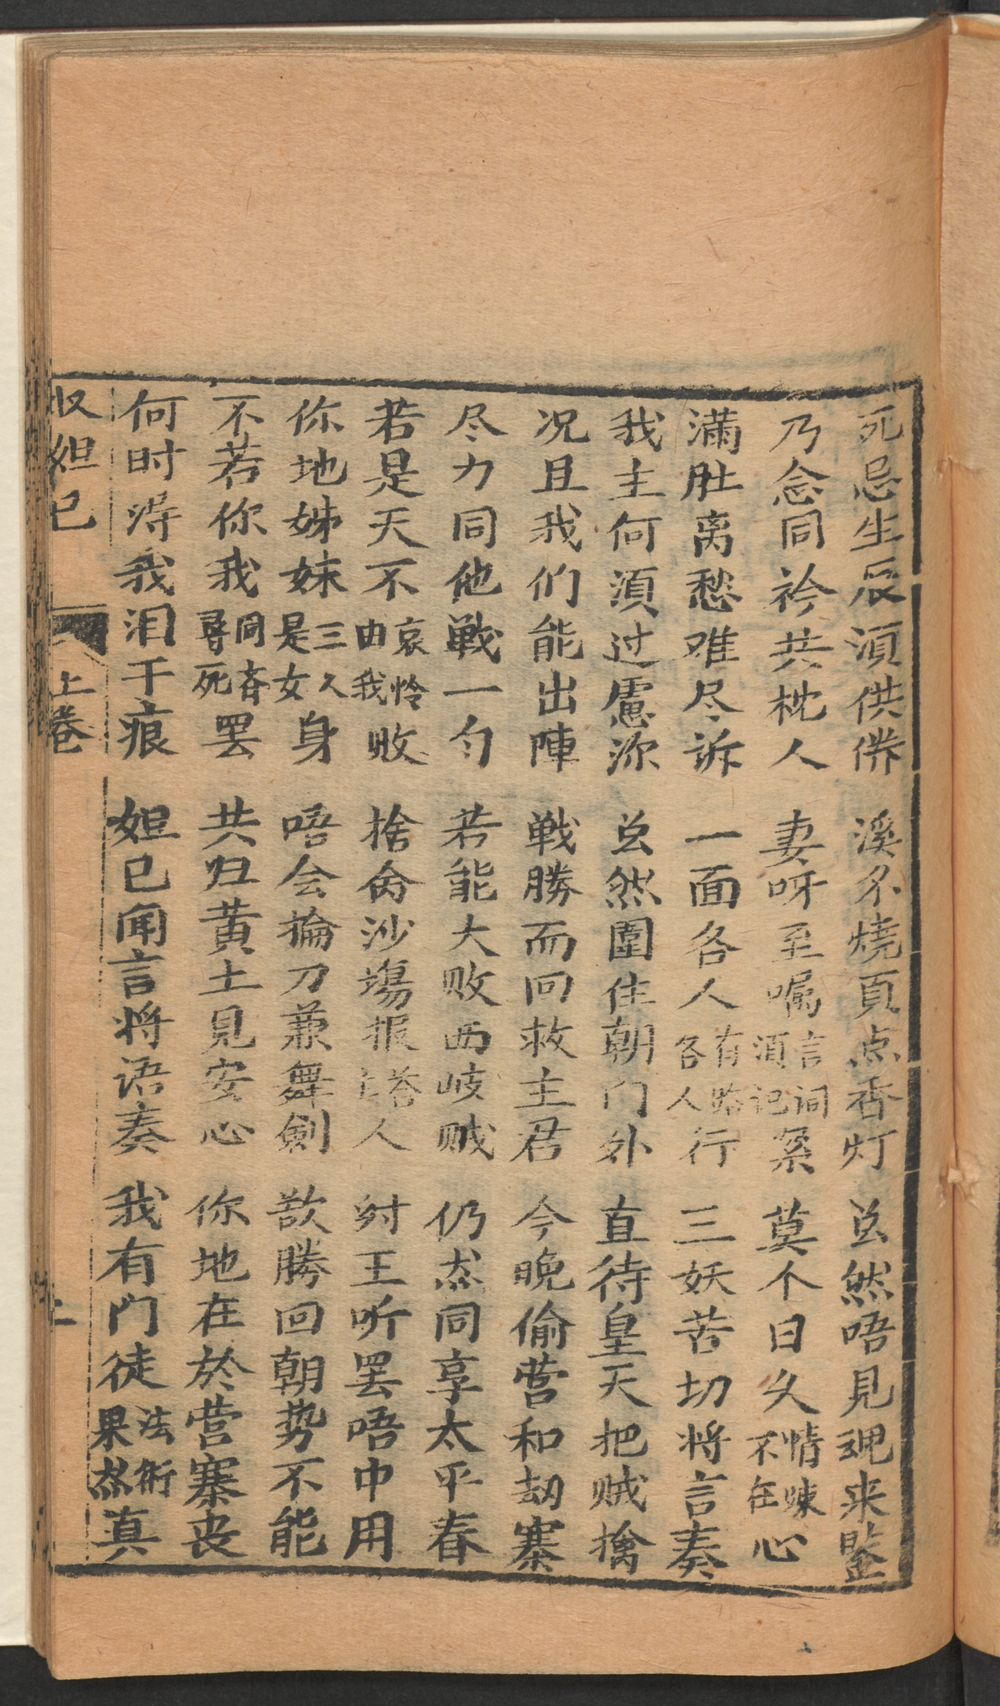 死忌生辰須供俻　溪水燒頁点香灯　𠮷然唔見䰟来鍳
乃念同衿共枕人　妻呀至嘱言词須记緊　莫个日久情踈不在心
满肚离愁难尽诉　一面各人有路各人行　三妖苦切将言奏
我主何湏过慮深　𠮷然圍住朝门外　直待皇天把贼擒
况且我们能出陣　戦勝而回救主君　今晚偷营和刧寨
尽力同他戦一匀　若能大败西岐贼　仍然同享太平春
若是天不哀怜由我败　捨命沙塲报答主人　紂王听罢唔中用
你地姊妹三人是女身　唔会掄刀兼舞劍　欲勝回朝势不能
不若你我同斉尋死罢　共归黄土見安心　你地在於营寨丧
何时淂我泪干痕　妲己闻言将语奏　我有门徒法術果然真
収妲己　上卷　上